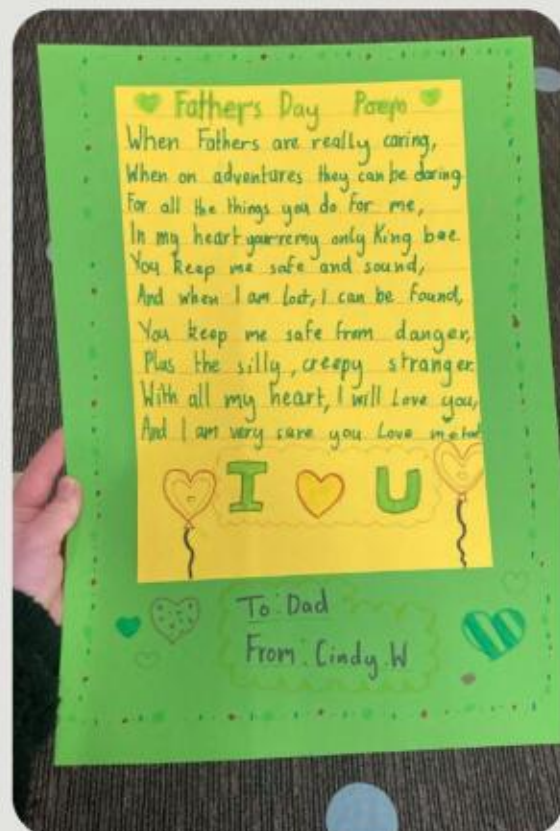 Father's Day Poem
When Fathers are really caring,
When on adventures they can be daring
For all the things you do for me,
In my heart your my only King bee.
You keep me safe and sound,
And when I am lost, I can be found,
You keep me safe from danger,
Plus the silly, creepy stranger.
With all my heart, I will Love you,
And I am very sure you Love me
I U
To: Dad
From: Cindy.W